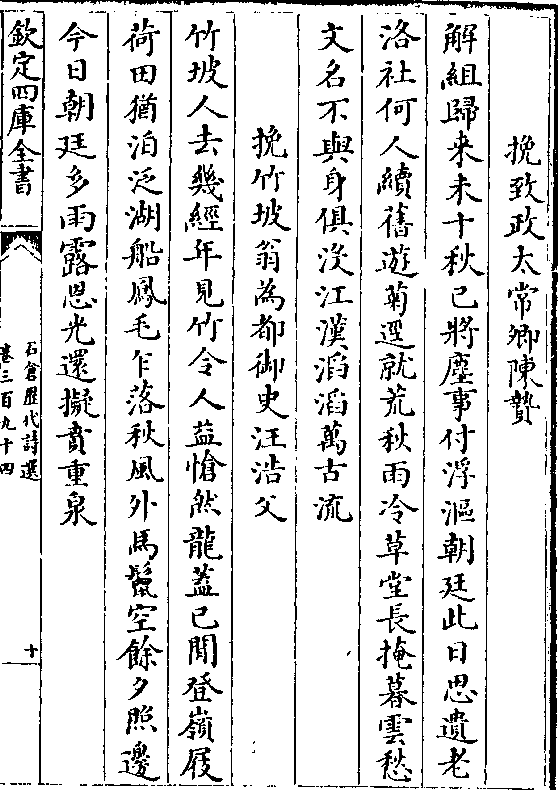 挽致政太常卿陳贄
解組歸来未十秋已將塵事付浮漚朝廷此日思遺老
洛社何人續舊遊菊逕就荒秋雨冷草堂長掩暮雲愁
文名不與身俱沒江漢滔滔萬古流
挽竹坡翁為都御史汪浩父
竹坡人去幾經年見竹令人益愴然龍蓋已閒登嶺屐
荷田猶泊泛湖船鳳毛乍落秋風外馬鬛空餘夕照邊
今日朝廷多雨露恩光還擬賁重泉
欽定四庫全書
石倉歷代詩選
卷三百九十四
十